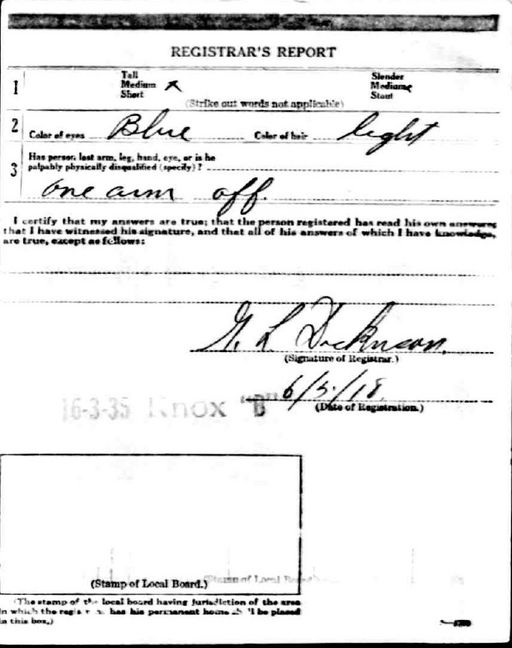 REGISTRAR'S REPORT
1 Tall Slender
Medium x Medium x
Short Stout
(Strike out words not applicable)
2 Color of eyes Blue Color of hair light
3 Has person lost arm, leg, hand, eye, or is he
palpably physically disqualified (specify)?
one arm off.
I certify that my answers are true; that the person registered has read his own answers;
that I have witnessed his signature, and that all of his answers of which I have knowledge,
are true, except as follows:
L Dickinson.
(Signature of Registrar.)
6/5/18.
16-3-35 Knox "B"
(Date of Registration.)
(Stamp of Local Board.)
(The stamp of the local board having jurisdiction of the area
in which the has his permanent home be placed
in this box.)